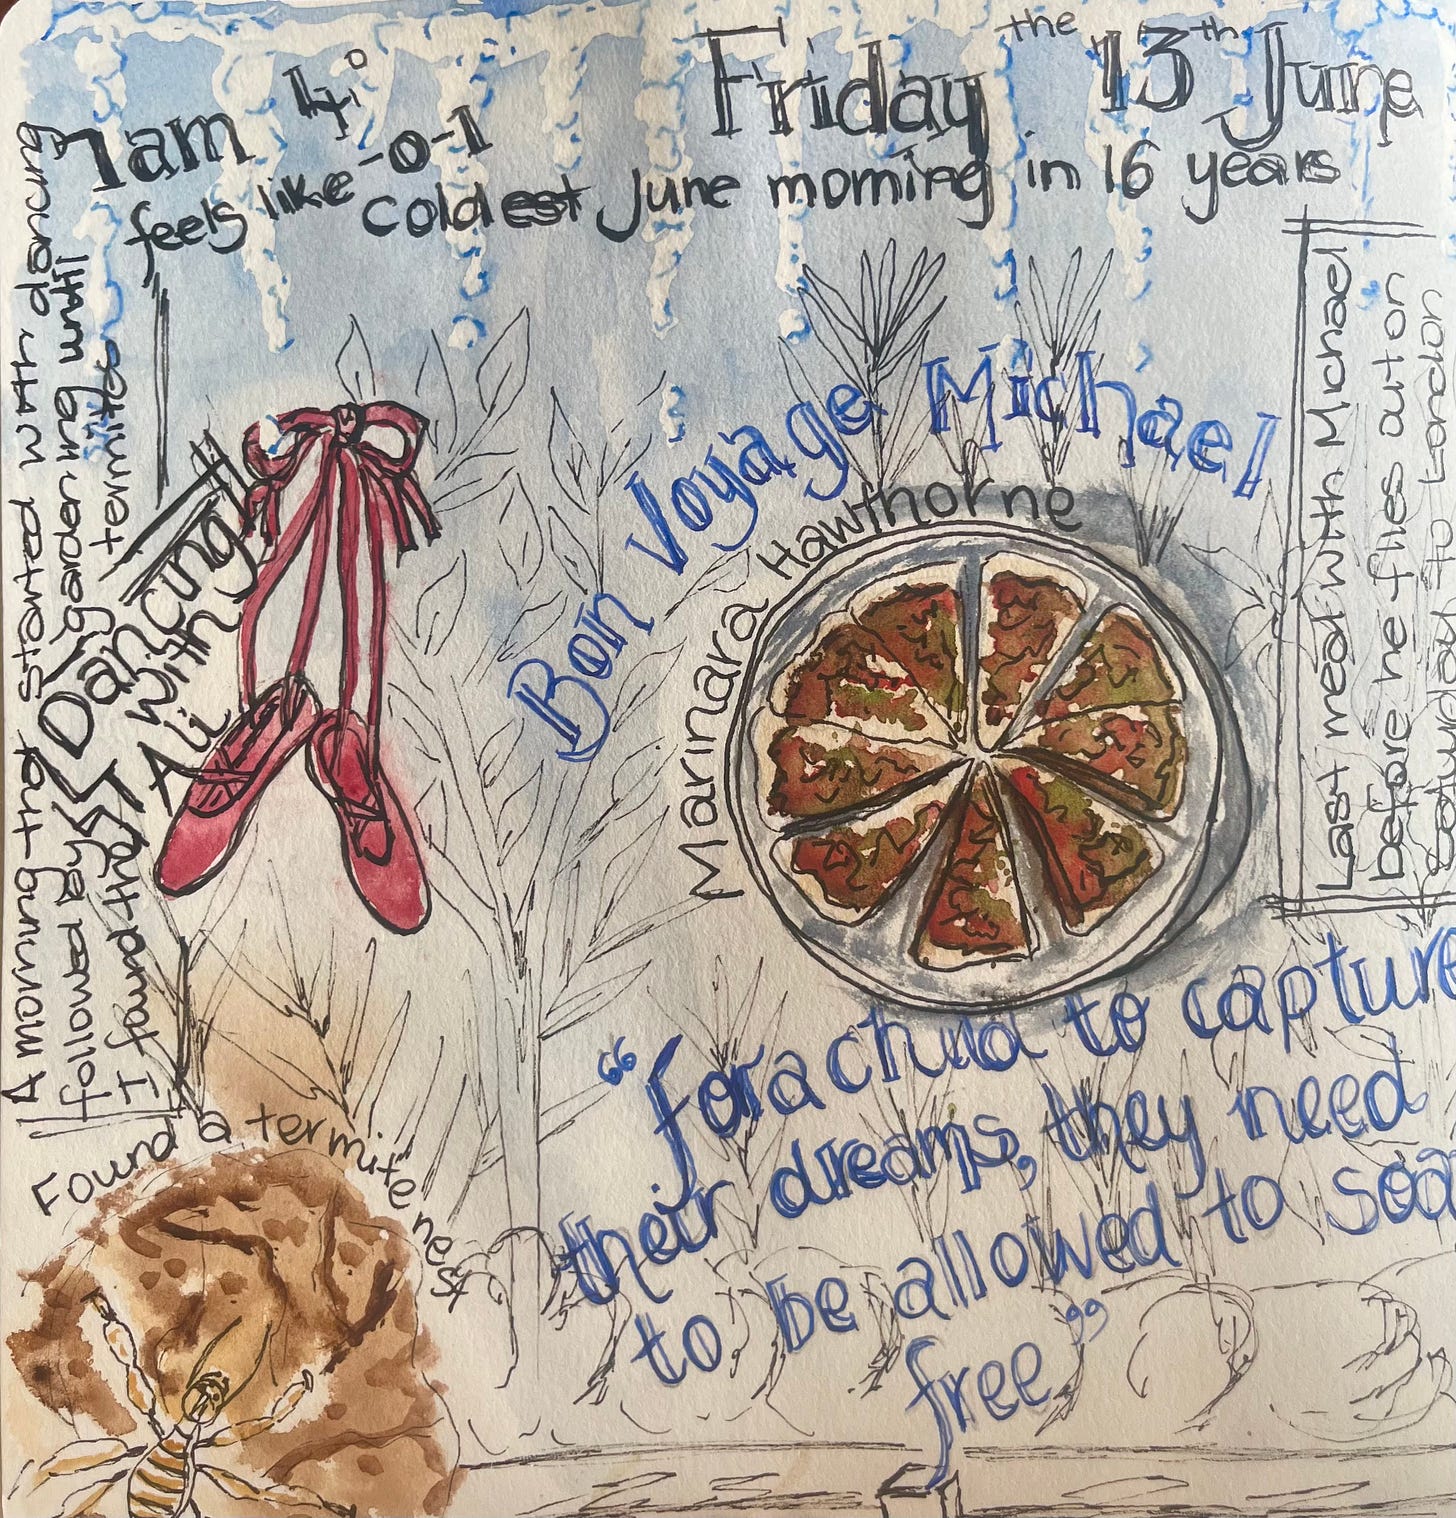 Friday the 13th June
7am 4°
feels like -0-1
coldest June morning in 16 years
A morning that started with dancing
followed by gardening until
I found the termites
Dancing
with
Ali
Bon Voyage Michael
Marinara Hawthorne
Last meal with Michael
before he flies out on
Saturday to London
Found a termite nest
"For a child to capture
their dreams, they need
to be allowed to soar
free"